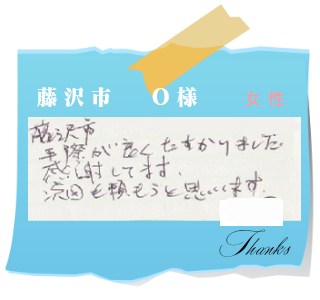 藤沢市 O様 女性
藤沢市
手際が良くたすかりました
感謝してます。
次回も頼もうと思います。
Thanks